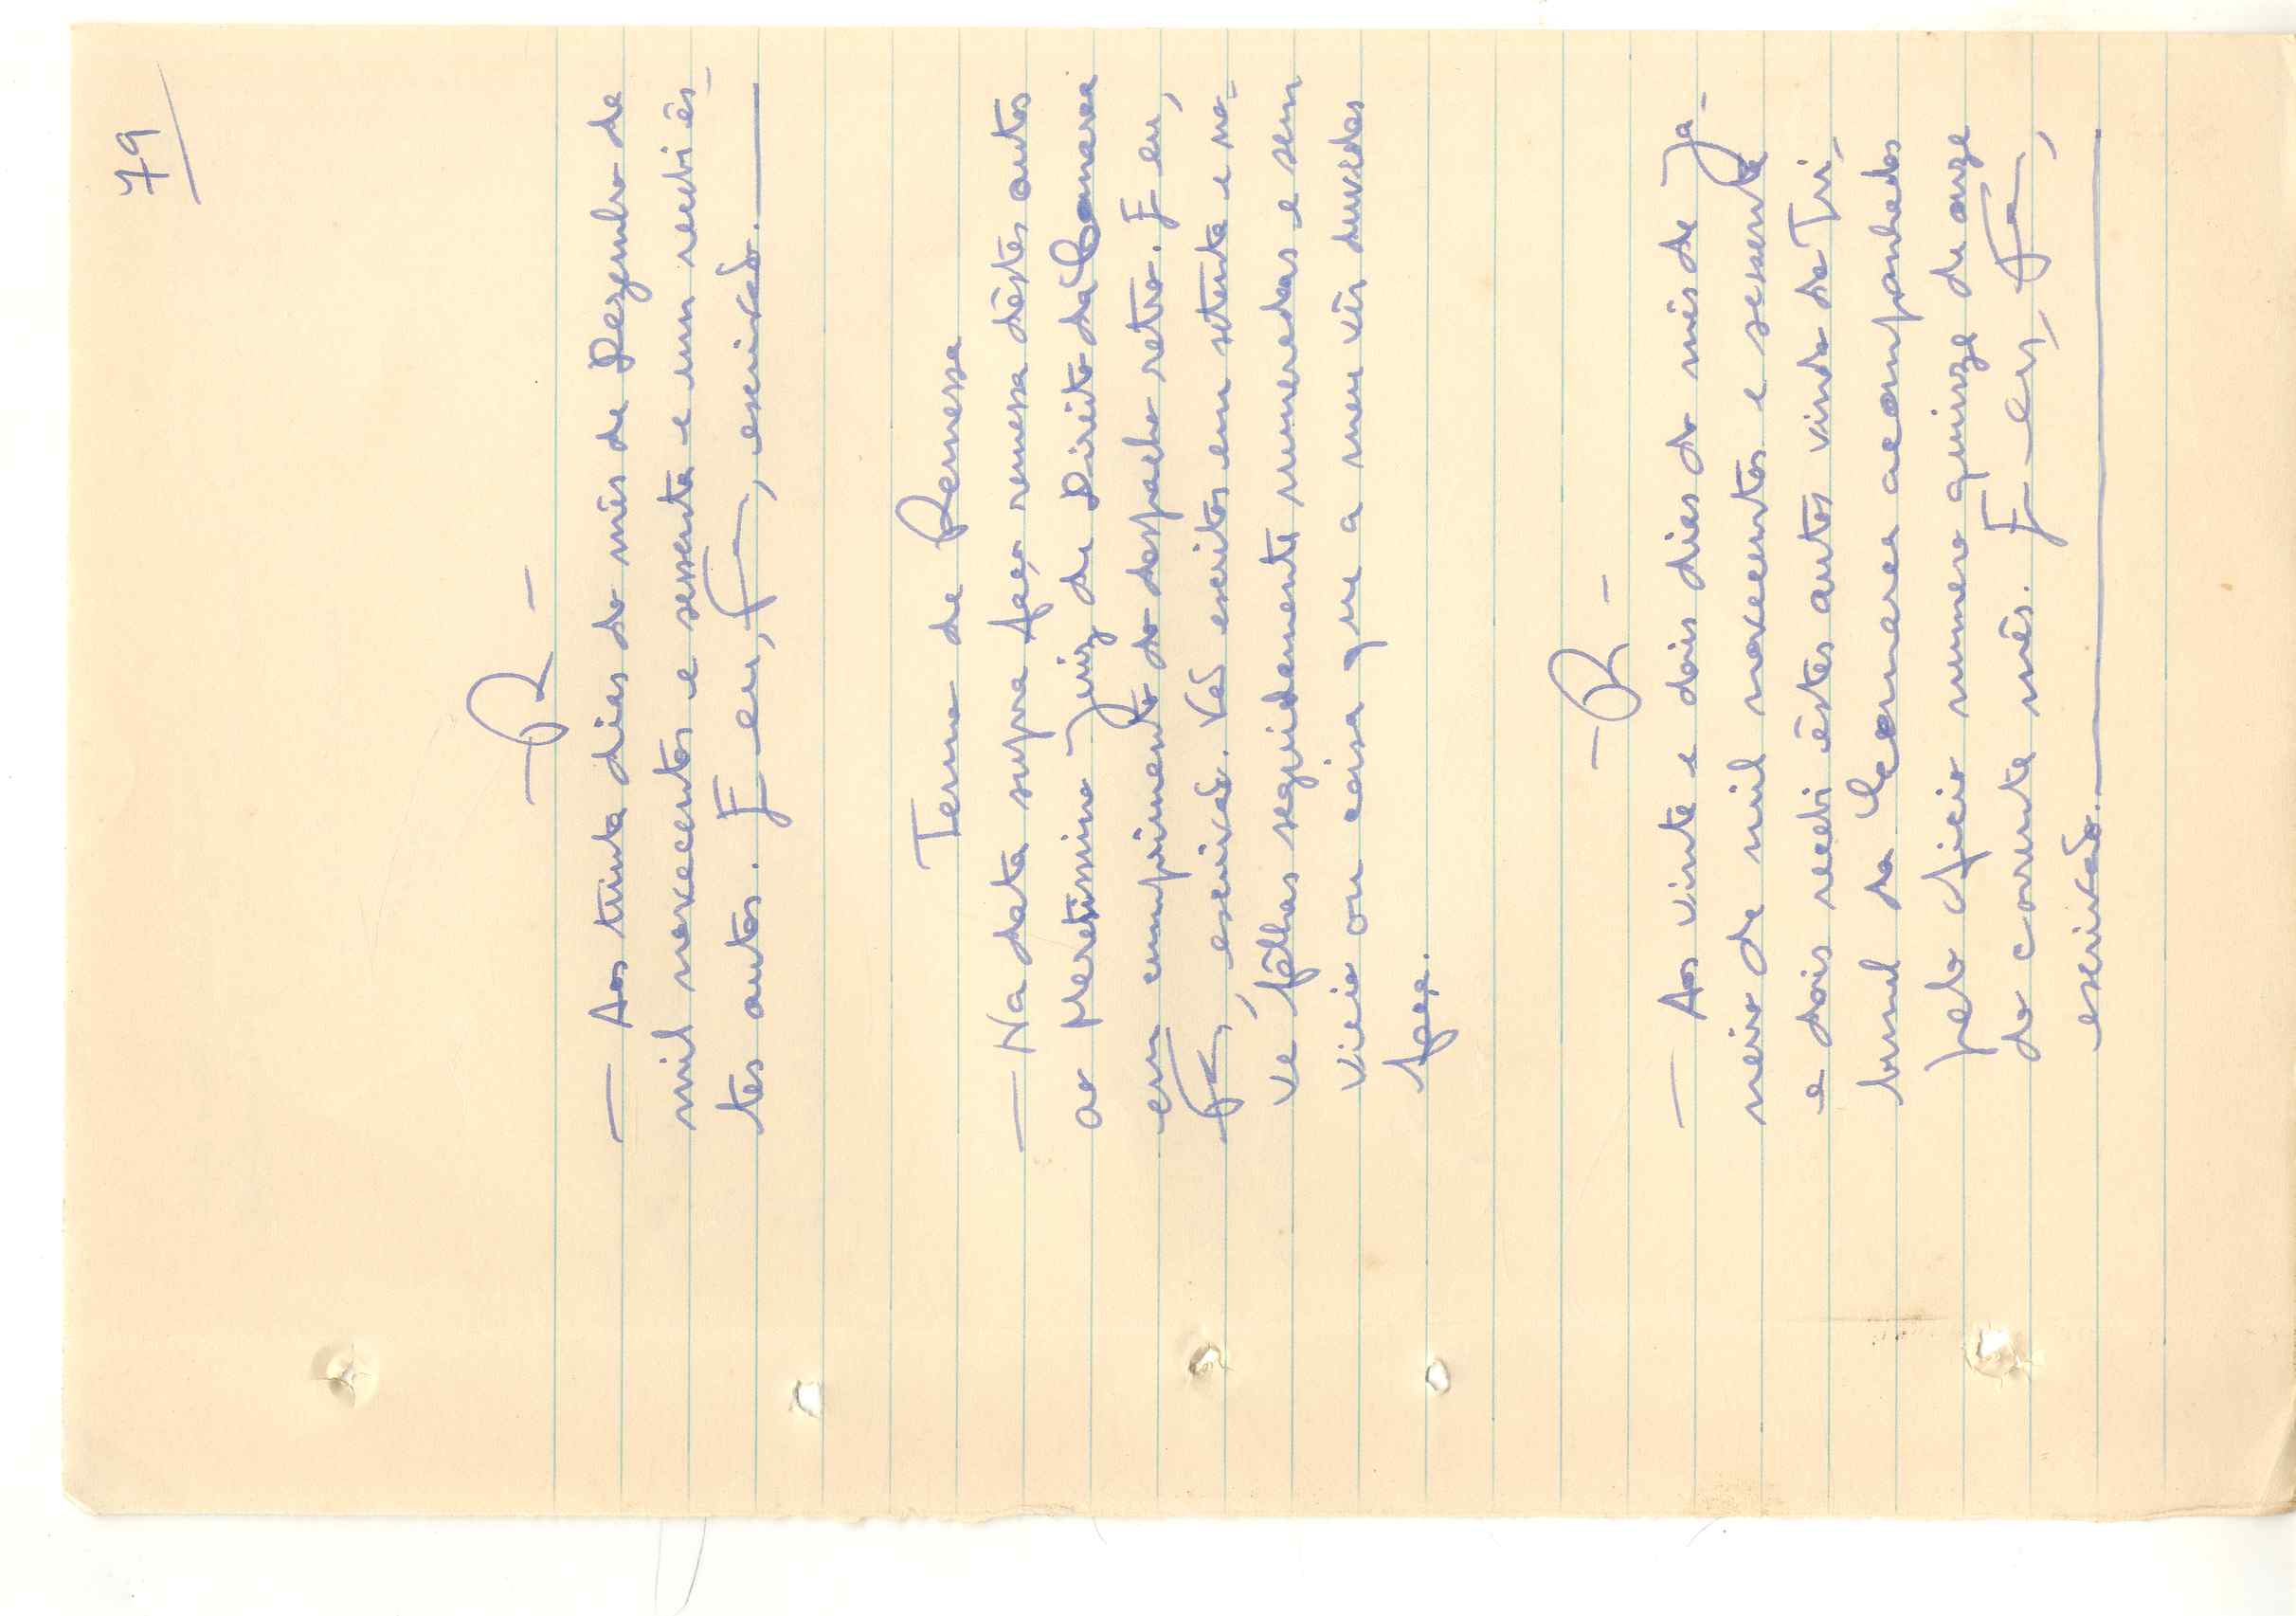 79
— R —
— Aos trinta dias do mês de Dezembro de
mil novecentos e sessenta e um recebi ês-
tes autos. E eu, escrivão.
Termo de Remessa
— Na data supra faço remessa dêstes autos
ao Meretissimo Juiz de Direito da Comarca
em cumprimento do despacho retro. E eu,
escrivão. Vai escritos em setenta e no-
ve fôlhas seguidamente numeradas e sem
vicio ou coisa que a meu vêr duvidas
faça.
— R —
— Aos vinte e dois dias do mês de Ja-
neiro de mil novecentos e sessenta
e dois recebi êstes autos vindo do Tri-
bunal da Comarca acompanhados
pelo oficio numero quinze de onze
do corrente mês. E eu,
escrivão.